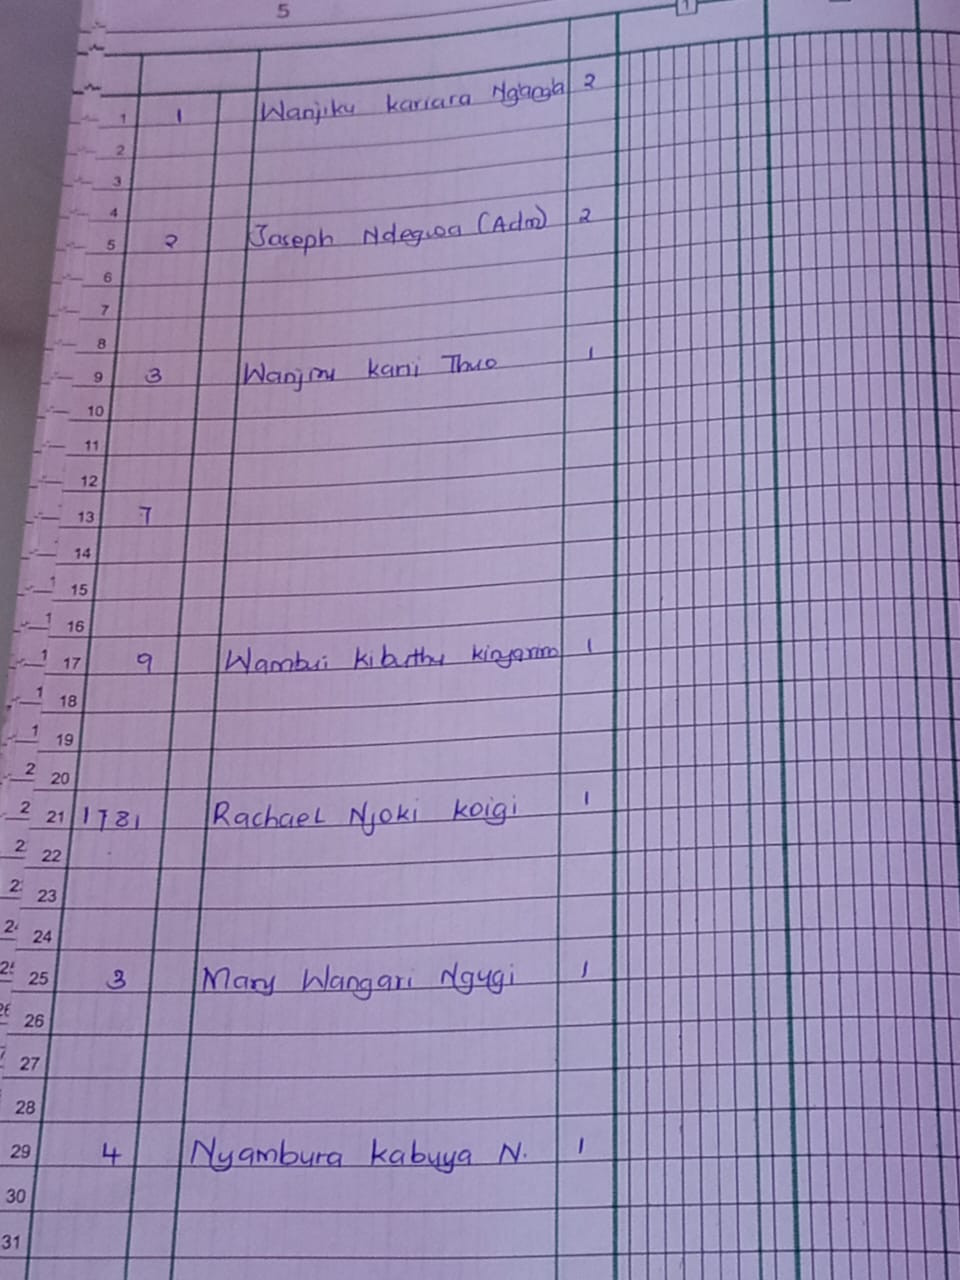 5
1
1 1 Wanjiku kariara Nganga 2
2
3
4
5 2 Joseph Ndegwa (Adm) 2
6
7
8
9 3 karii Thuo 1
10
11
12
13 7
14
1 15
16
1 17 9 Wambui kibuthu 1
1 18
1 19
2 20
2 21 1781 Rachael Njoki koigi 1
2 22
2 23
24 24
25 25 3 Mary Wangari Ngugi 1
26 26
27
28
29 4 Nyambura kabuya N. 1
30
31